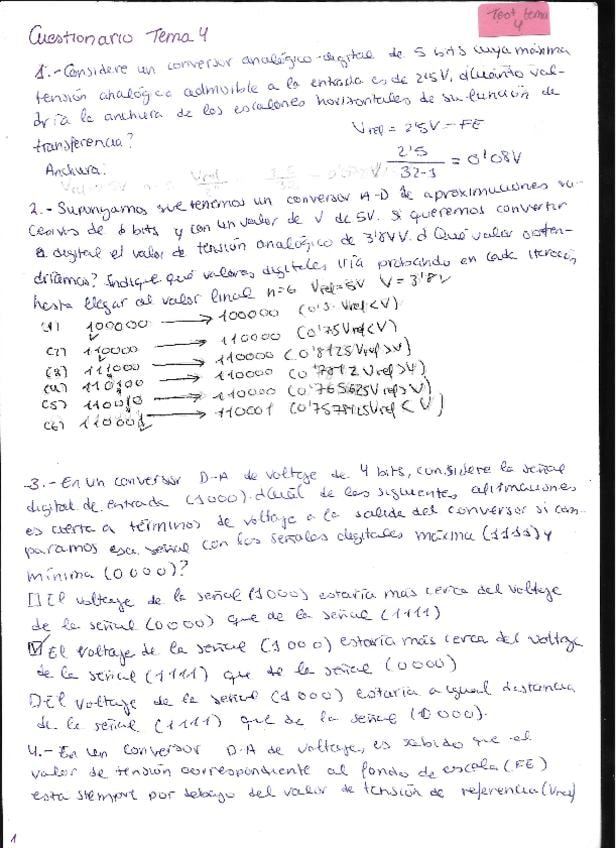 Test tema
4
Cuestionario Tema 4
1.- Considere un conversor analógico-digital de 5 bits cuya máxima
tensión analógica admisible a la entrada es de 2'5V, ¿Cuánto val-
dría la anchura de los escalones horizontales de su función de
transferencia?
Vref = 2'5V - FE
Anchura:
2'5 / 32-1 = 0'08V
2.- Supongamos que tenemos un conversor A-D de aproximaciones su-
cesivas de 6 bits y con un valor de V de 5V. Si queremos convertir
a digital el valor de tensión analógico de 3'8V. ¿Qué valor obten-
dríamos? Indique qué valores digitales iría probando en cada iteración
hasta llegar al valor final n=6 Vref=5V V=3'8V
(1) 100000 → 100000 (0'5·Vref<V)
(2) 110000 → 110000 (0'75Vref<V)
(3) 111000 → 110000 (0'8125Vref>V)
(4) 110100 → 110000 (0'7812Vref>V)
(5) 110010 → 110000 (0'765625Vref>V)
(6) 110001 → 110001 (0'7578125Vref<V)
3.- En un conversor D-A de voltage de 4 bits, considere la señal
digital de entrada (1000). ¿Cuál de las siguientes afirmaciones
es cierta a términos de voltage a la salida del conversor si com-
paramos esa señal con las señales digitales máxima (1111) y
mínima (0000)?
El voltage de la señal (1000) estaría más cerca del voltage
de la señal (0000) que de la señal (1111)
El voltage de la señal (1000) estaría más cerca del voltage
de la señal (1111) que de la señal (0000)
El voltage de la señal (1000) estaría a igual distancia
de la señal (1111) que de la señal (0000).
4.- En un conversor D-A de voltage, es sabido que el
valor de tensión correspondiente al fondo de escala (FE)
esta siempre por debajo del valor de tensión de referencia (Vref)
1